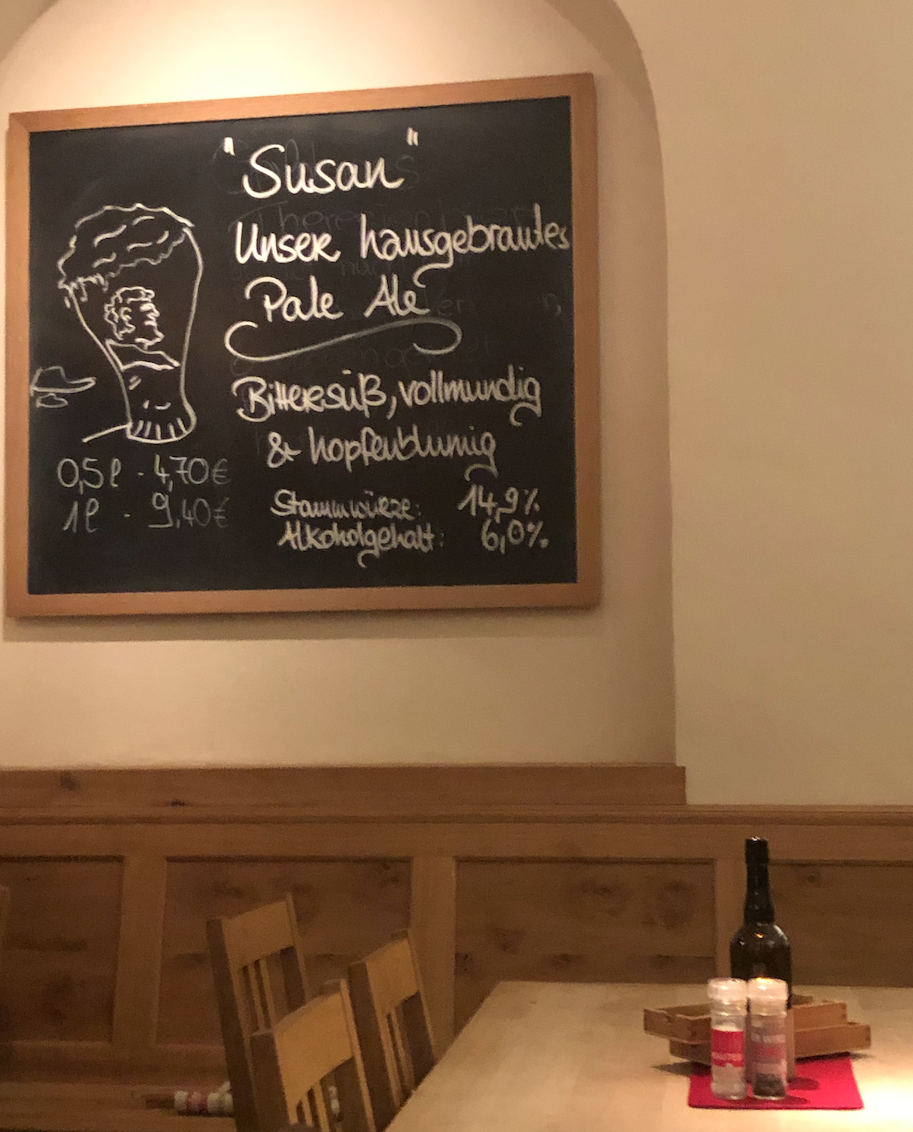 "Susan"
Unser hausgebrautes
Pale Ale
Bittersüß, vollmundig
& hopfenblumig
0,5l - 4,70€
1l - 9,40€
Stammwürze: 14,9%
Alkoholgehalt: 6,0%